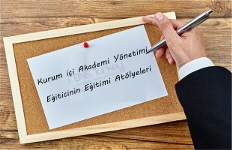 Kurum içi Akademi Yönetimi
Eğiticinin Eğitimi Atölyeleri